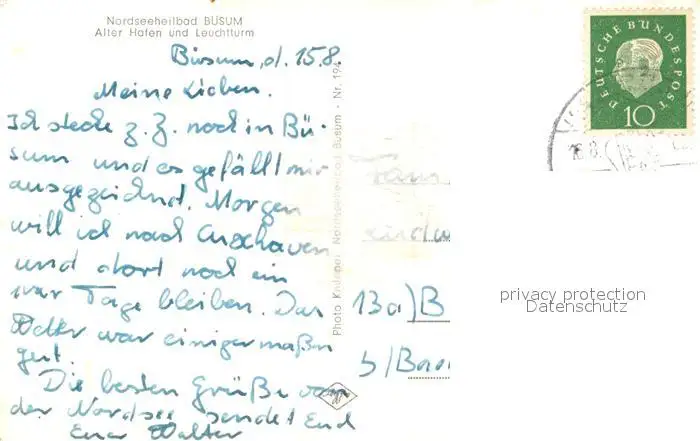 Nordseeheilbad BÜSUM
Alter Hafen und Leuchtturm
Büsum, d. 15.8.
Meine Lieben.
Ich stecke z. Z. noch in Bü-
sum und es gefällt mir
ausgezeichnet. Morgen
will ich nach Cuxhaven
und dort noch ein
paar Tage bleiben. Das
Wetter war einigermaßen
gut.
Die besten Grüße von
der Nordsee sendet Euch
Euer Walter
Nordseeheilbad Büsum - Nr. 194
Photo
DEUTSCHE BUNDESPOST
10
Fam
13a) B
b/
privacy protection
Datenschutz